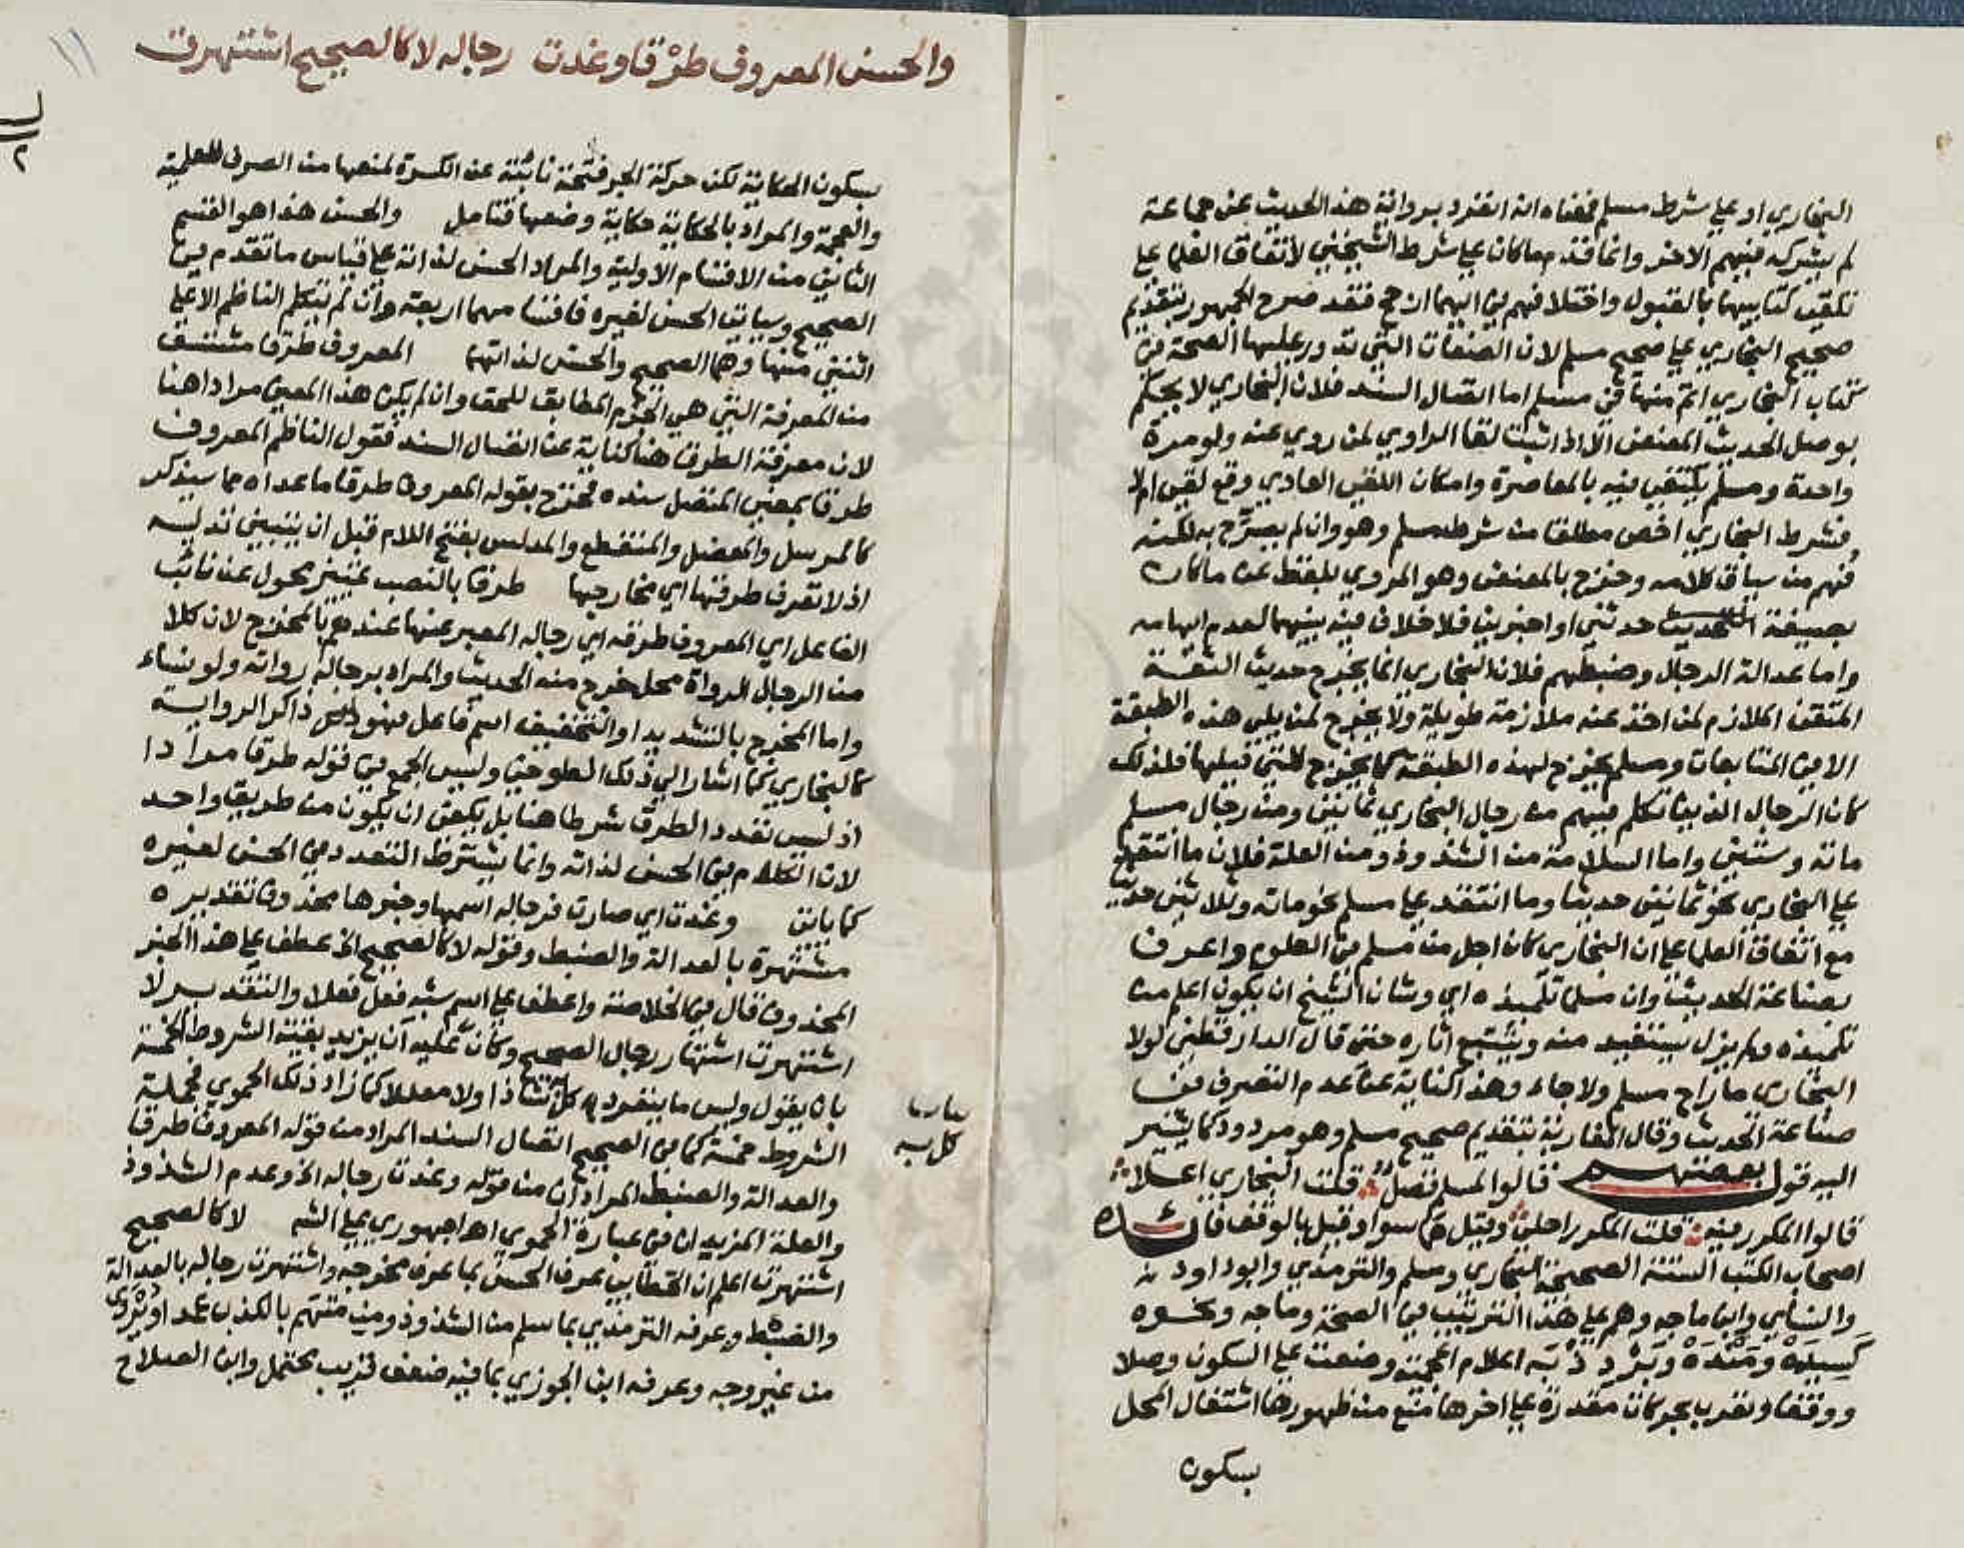 البخاري او علي شرط مسلم فمعناه انه انفرد برواية هذا الحديث عن جماعة
لم يشركه فيهم الاخر وانما قدم ما كان علي شرط الشيخين لاتفاق العلما علي
تلقي كتابيهما بالقبول واختلافهم في ايهما ارجح فقد صرح الجمهور بتقديم
صحيح البخاري علي صحيح مسلم لان الصفات التي تدور عليها الصحة في
كتاب البخاري اتم منها في مسلم اما اتصال السند فلان البخاري لا يحكم
بوصل الحديث المعنعن الا اذا ثبت لقا الراوي لمن روي عنه ولو مرة
واحدة ومسلم يكتفي فيه بالمعاصرة وامكان اللقي العادي وقع لقي ام لا
فشرط البخاري اخص مطلقا من شرط مسلم وهو وان لم يصرح به لكنه
فهم من سياق كلامه وخرج بالمعنعن وهو المروي بلفظ عن ما كان
بصيغة التحديث حدثني او اخبرني فلا خلاف فيه بينهما لعدم ابهامه
واما عدالة الرجال وضبطهم فلان البخاري انما يخرج حديث الثقة
المتقن الملازم لمن اخذ عنه ملازمة طويلة ولا يخرج لمن يلي هذه الطبقة
الا في المتابعات ومسلم يخرج لهذه الطبقة كما يخرج للتي قبلها فلذلك
كان الرجال الذين تكلم فيهم من رجال البخاري ثمانين ومن رجال مسلم
مائة وستين واما السلامة من الشذوذ ومن العلة فلان ما انتقد
علي البخاري نحو ثمانين حديثا وما انتقد علي مسلم نحو مائة وثلاثين حديثا
مع اتفاق العلما علي ان البخاري كان اجل من مسلم في العلوم واعرف
بصناعة الحديث وان مسلما تلميذه اي وشان الشيخ ان يكون اعلم من
تلميذه ولم يزل يستفيد منه ويتتبع اثاره حتي قال الدارقطني لولا
البخاري ما راح مسلم ولا جاء وهذا كناية عن عدم التصرف في
صناعة الحديث وقال المغاربة بتقديم صحيح مسلم وهو مردود كما يشير
اليه قول بعضهم قالوا لمسلم فضل قلت البخاري اعلا
قالوا المكرر فيه قلت المكرر احلي وقيل هما سواء وقيل بالوقف فائدة
اصحاب الكتب الستة الصحيحة البخاري ومسلم والترمذي وابو داود
والنسائي وابن ماجه وهم علي هذا الترتيب في الصحة وماجه ونحوه
كسيده ومنده وبردزبه اعلام اعجمية وضعت علي السكون وصلا
ووقفا وتعرب بحركات مقدرة علي اخرها منع من ظهورها اشتغال المحل
بسكون
والحسن المعروف طرقا وغدت رجاله لا كالصحيح اشتهرت
١١
٢
بسكون الحكاية لكن حركة الجر فتحة نائبة عن الكسرة لمنعها من الصرف للعلمية
والعجمة والمراد بالحكاية حكاية وضعها فتامل والحسن هذا هو القسم
الثاني من الاقسام الاولية والمراد الحسن لذاته علي قياس ما تقدم في
الصحيح وسياتي الحسن لغيره فاقسامهما اربعة وان لم يتكلم الناظم الا علي
اثنين منها وهما الصحيح والحسن لذاتهما المعروف طرقا مشتق
من المعرفة التي هي الجزم المطابق للحق وان لم يكن هذا المعني مرادا هنا
لان معرفة الطرق هنا كناية عن اتصال السند فقول الناظم المعروف
طرقا بمعني المتصل سنده فخرج بقوله المعروف طرقا ما عداه مما سيذكر
كالمرسل والمعضل والمنقطع والمدلس بفتح اللام قبل ان يتبين تدليسه
اذ لا تعرف طرقها اي مخارجها طرقا بالنصب تمييز محول عن نائب
الفاعل اي المعروف طرقه اي رجاله المعبر عنها عندهم بالمخرج لان كلا
من الرجال الرواة محل خرج منه الحديث والمراد برجاله رواته ولو نساء
واما المخرج بالتشديد او التخفيف اسم فاعل فهو ذاكر الرواية
كالبخاري كما اشار الي ذلك الطوخي وليس الجمع في قوله طرقا مرادا
اذ ليس تعدد الطرق شرطا هنا بل يكفي ان يكون من طريق واحد
لان الكلام في الحسن لذاته وانما يشترط التعدد في الحسن لغيره
كما ياتي وغدت اي صارت فرجاله اسمها وخبرها محذوف تقديره
مشتهرة بالعدالة والضبط وقوله لا كالصحيح الخ عطف علي هذا الخبر
المحذوف قال في الخلاصة واعطف علي اسم شبه فعل فعلا والتقدير لا
اشتهرت اشتهار رجال الصحيح وكان عليه ان يزيد بقية الشروط الخمسة
بان يقول وليس ما ينفرد به كل شاذا ولا معللا كما زاد ذلك الحموي فجملة
الشروط خمسة كما في الصحيح اتصال السند المراد من قوله المعروف طرقا
والعدالة والضبط المرادان من قوله وغدت رجاله الخ وعدم الشذوذ
والعلة المزيدان في عبارة الحموي اهـ اجهوري علي الشـ لا كالصحيح
اشتهرت اعلم ان الخطابي عرف الحسن بما عرف مخرجه واشتهرت رجاله بالعدالة
والضبط وعرفه الترمذي بما سلم من الشذوذ ومن متهم بالكذب عمدا ويروي
من غير وجه وعرفه ابن الجوزي بما فيه ضعف قريب محتمل وابن الصلاح